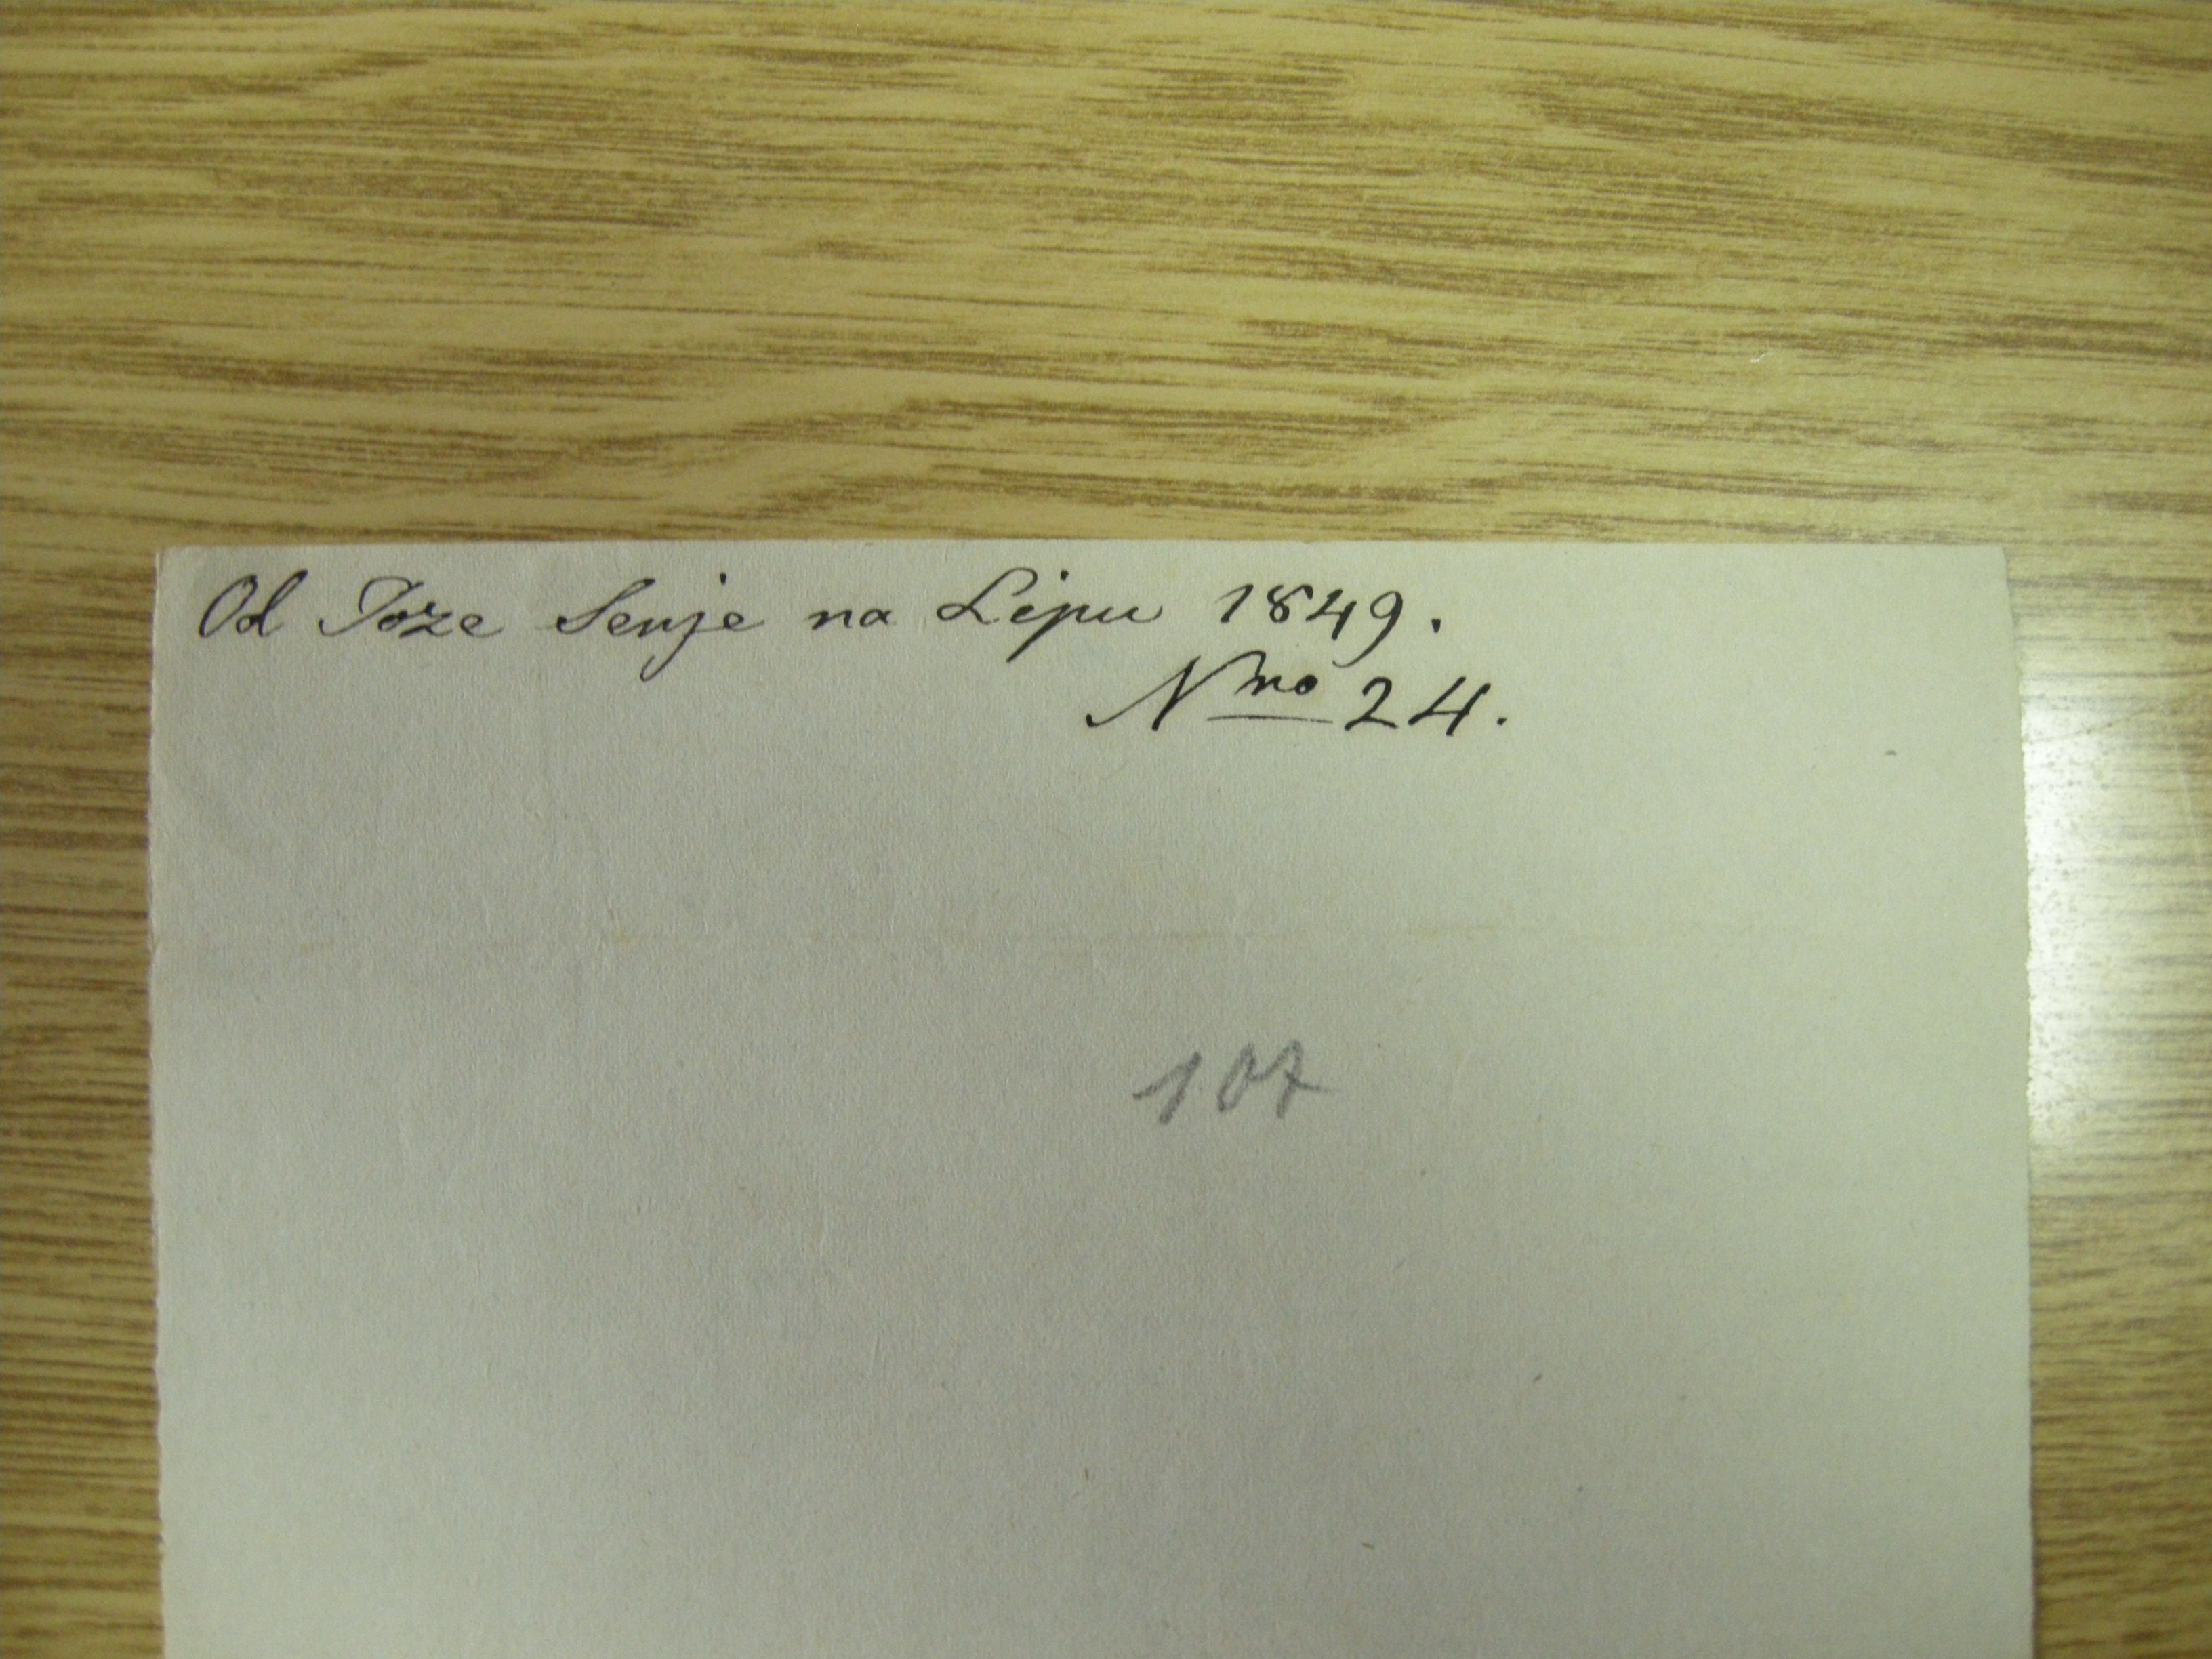 Od Jože Senje na Lipu 1849.
Nro 24.
107